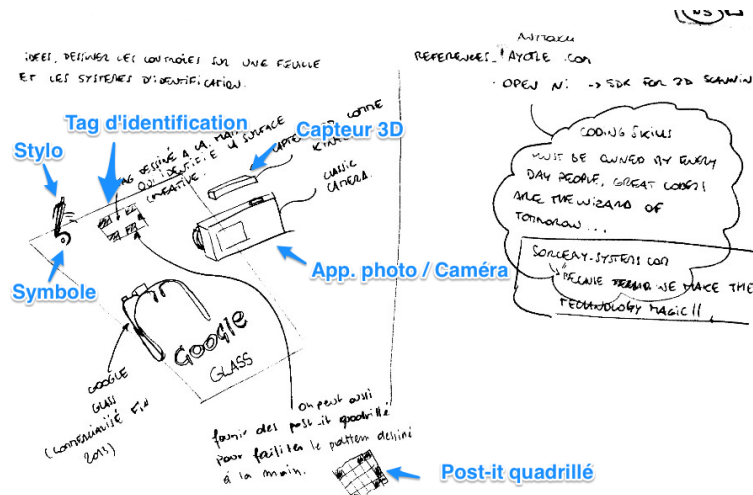 IDEES, DESSINER LES CONTROLES SUR UNE FEUILLE
ET LES SYSTEMES D'IDENTIFICATION.
Tag d'identification
Stylo
TAG DESSINÉ A LA MAIN
QUI IDENTIFIE LA SURFACE
CREATIVE.
Capteur 3D
COMME
CLASSIC
CAMERA.
App. photo / Caméra
Symbole
GOOGLE
GLASS
GOOGLE
GLASS
(COMMERCIALISÉ FIN
2013)
On peut aussi
fournir des post-it quadrillé
pour faciliter le pattern dessiné
à la main.
Post-it quadrillé
REFERENCES_ AYOTLE .COM
OPEN NI -> SDK FOR 3D SCANNIN
CODING SKILLS
MUST BE OWNED BY EVERY
DAY PEOPLE, GREAT CODERS
ARE THE WIZARD OF
TOMORROW...
SORCERY-SYSTEMS COM
WE MAKE THE
TECHNOLOGY MAGIC !!